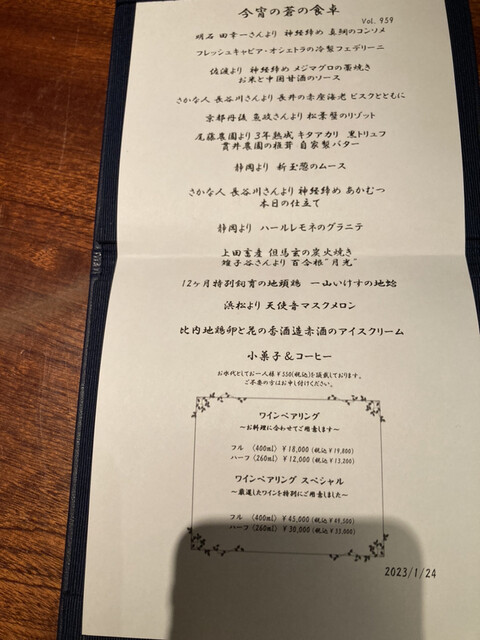 今宵の蒼の食卓
Vol. 959
明石 田幸一さんより 神経締め 真鯛のコンソメ
フレッシュキャビア・オシェトラの冷製フェデリーニ
佐渡より 神経締め メジマグロの藁焼き
お米と中国甘酒のソース
さかな人 長谷川さんより 長井の赤座海老 ビスクとともに
京都丹後 魚政さんより 松葉蟹のリゾット
尾藤農園より 3年熟成 キタアカリ 黒トリュフ
貫井農園の椎茸 自家製バター
静岡より 新玉葱のムース
さかな人 長谷川さんより 神経締め あかむつ
本日の仕立て
静岡より ハールレモネのグラニテ
上田畜産 但馬玄の炭火焼き
蛯子谷さんより 百合根"月光"
12ヶ月特別飼育の地頭鶏 一山いけすの地蛤
浜松より 天使音マスクメロン
比内地鶏卵と花の香酒造赤酒のアイスクリーム
小菓子&コーヒー
お水代としてお一人様¥550(税込)を頂戴しております。
ご不要の方はお申し付けください。
ワインペアリング
～お料理に合わせてご用意します～
フル (400ml) ¥18,000(税込 ¥19,800)
ハーフ (260ml) ¥12,000(税込 ¥13,200)
ワインペアリング スペシャル
～厳選したワインを特別にご用意しました～
フル (400ml) ¥45,000(税込 ¥49,500)
ハーフ (260ml) ¥30,000(税込 ¥33,000)
2023/1/24